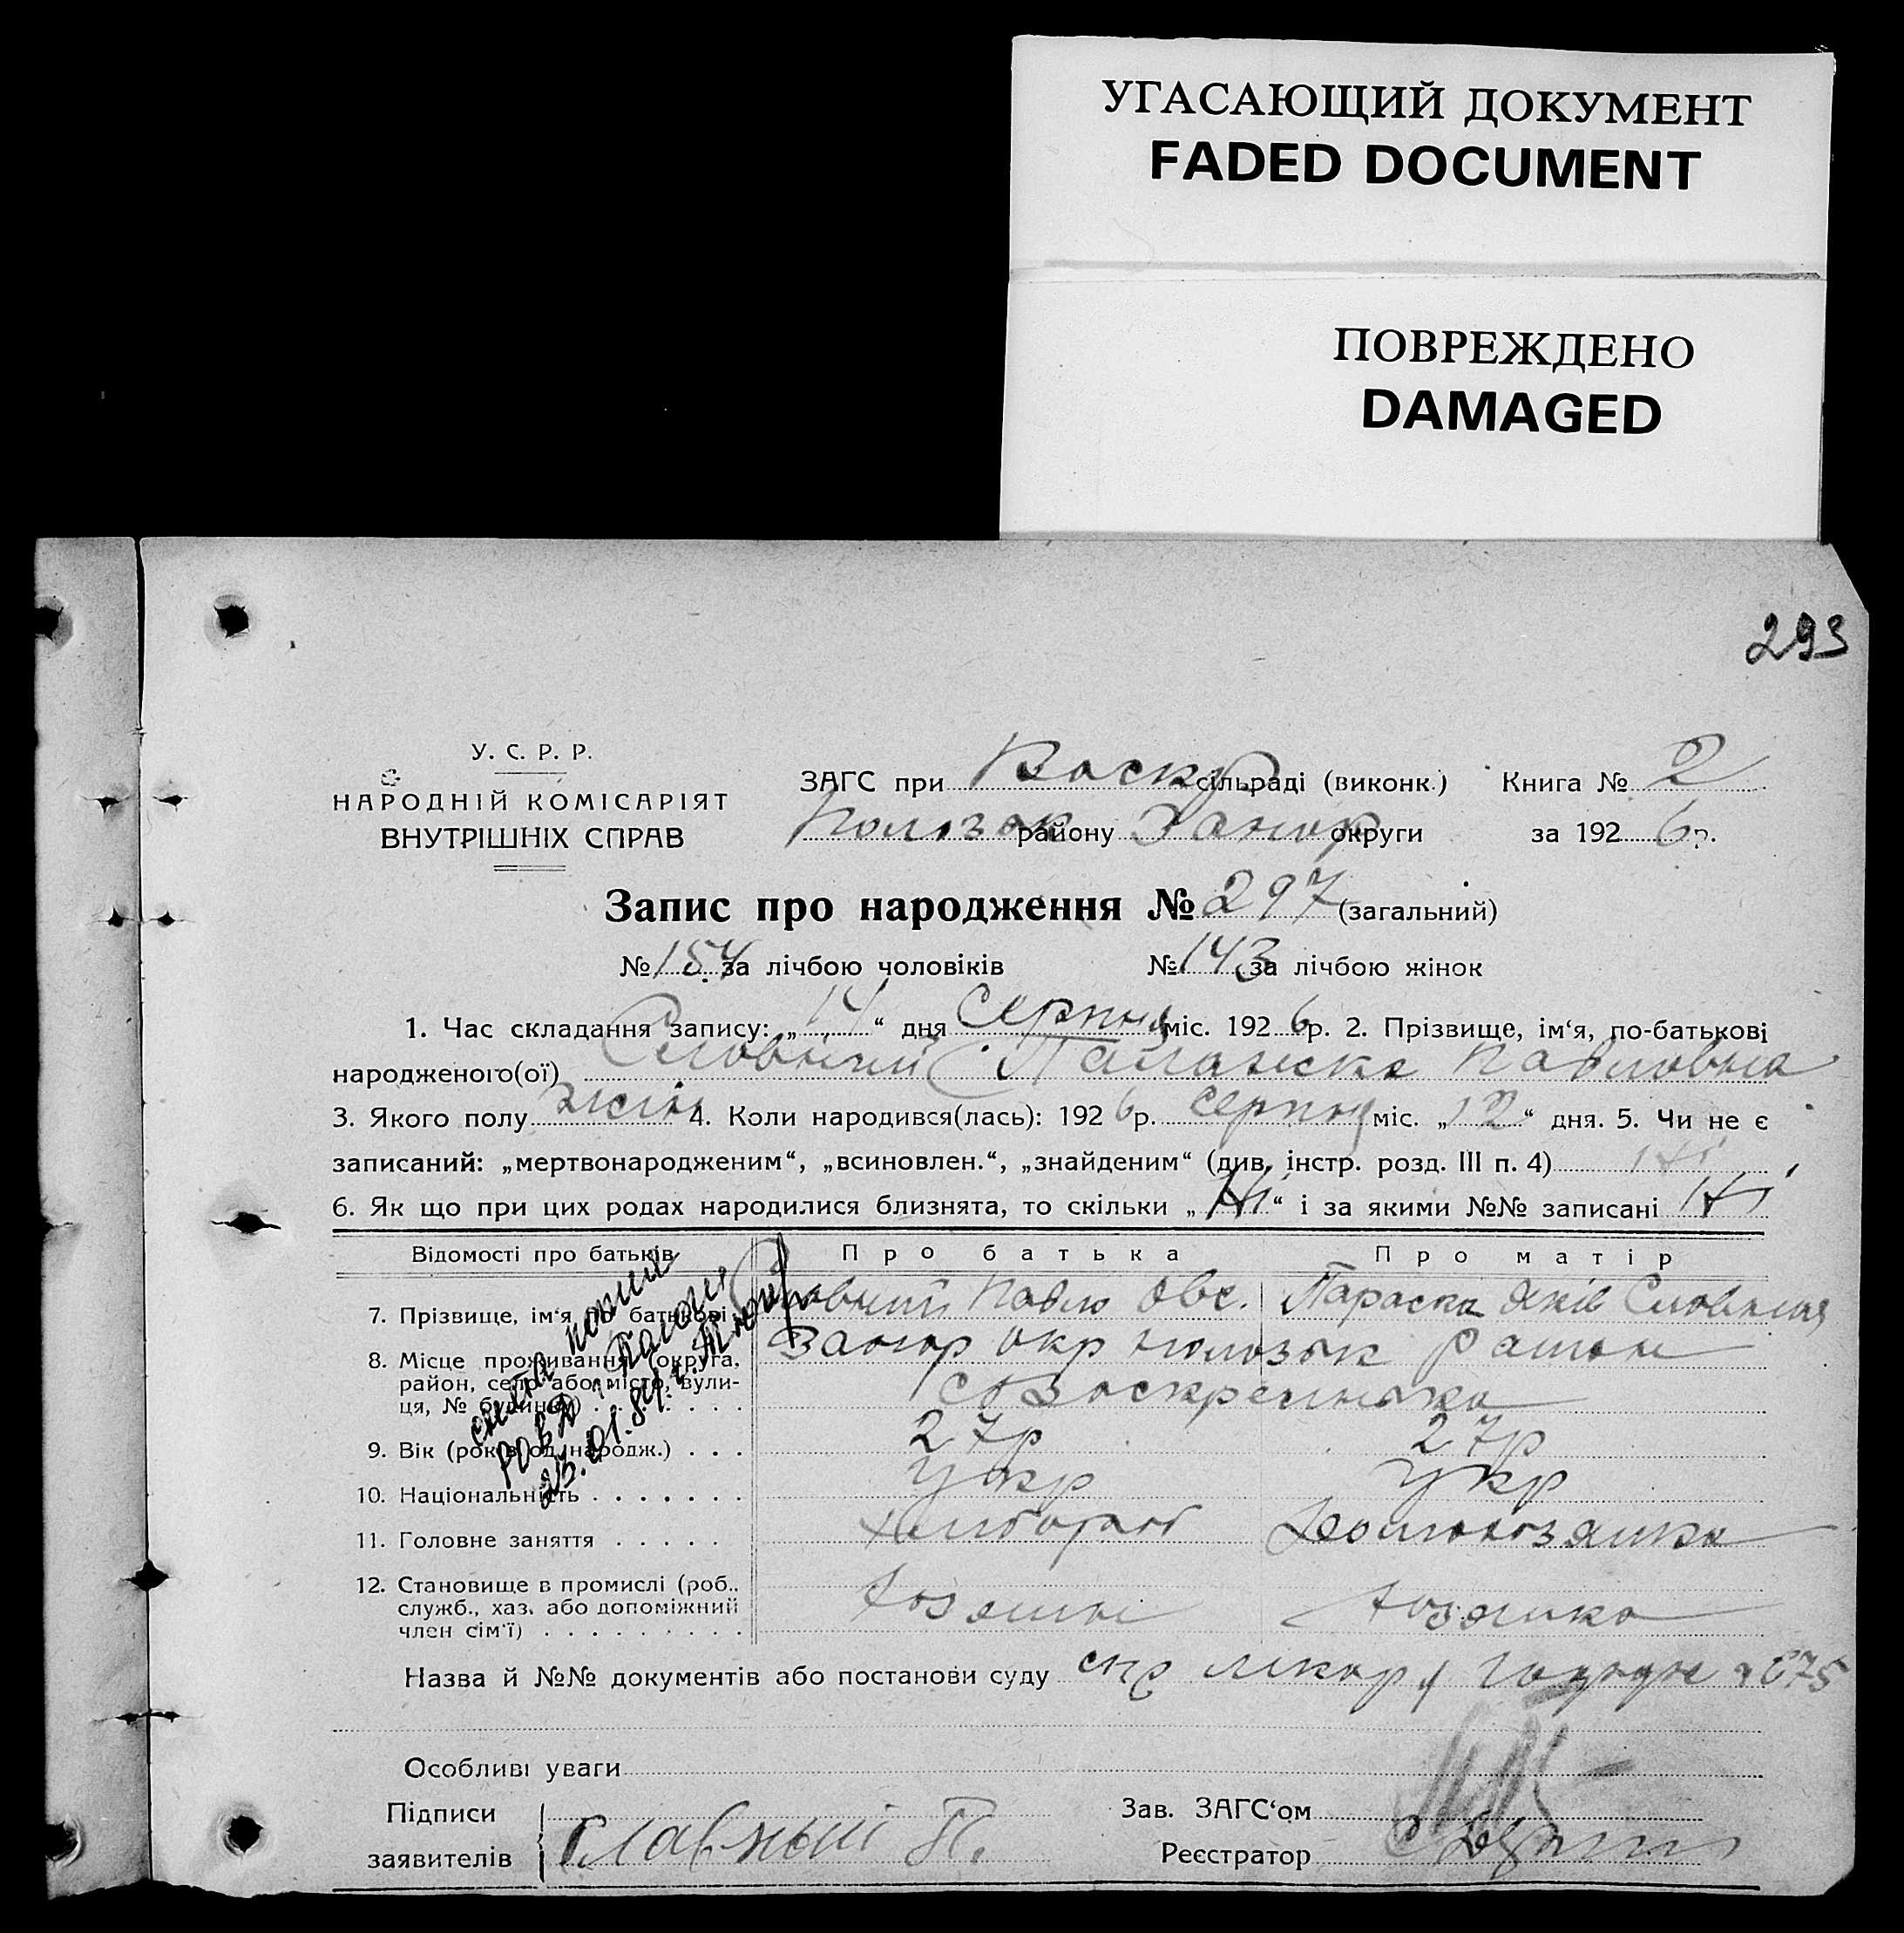 УГАСАЮЩИЙ ДОКУМЕНТ
FADED DOCUMENT
ПОВРЕЖДЕНО
DAMAGED
293
У. С. Р. Р.
НАРОДНІЙ КОМІСАРІЯТ
ВНУТРІШНІХ СПРАВ
ЗАГС при Воскр сільраді (виконк.) Книга № 2
району Запор округи за 192 6 р.
Запис про народження № 297 (загальний)
№ 154 за лічбою чоловіків № 143 за лічбою жінок
1. Час складання запису: „ 14 “ дня Серпня міс. 192 6 р. 2. Прізвище, ім‘я, по-батькові
народженого(ої) Палажка Павловна
3. Якого полу жін 4. Коли народився(лась): 192 6 р. серпня міс. „ 12 “ дня. 5. Чи не є
записаний: „мертвонародженим“, „всиновлен.“, „знайденим“ (див. інстр. розд. III п. 4) Ні
6. Як що при цих родах народилися близнята, то скільки „ Ні “ і за якими №№ записані Ні
Відомості про батьків Про батька Про матір
7. Прізвище, ім‘я, по батькові Павло Овс. Параска Яків
8. Місце проживання (округа, Запор окр район
район, село або місто, вули-
ця, № будинку) с Воскресенка
9. Вік (років од народж.) 27р 27р
10. Національність укр укр
11. Головне заняття хлібороб Домохозяйка
12. Становище в промислі (роб.,
служб., хаз. або допоміжний хозяин хозяйка
член сім‘ї)
Назва й №№ документів або постанови суду спр лікар
Особливі уваги
Підписи Зав. ЗАГС‘ом
заявителів Главный П. Реєстратор